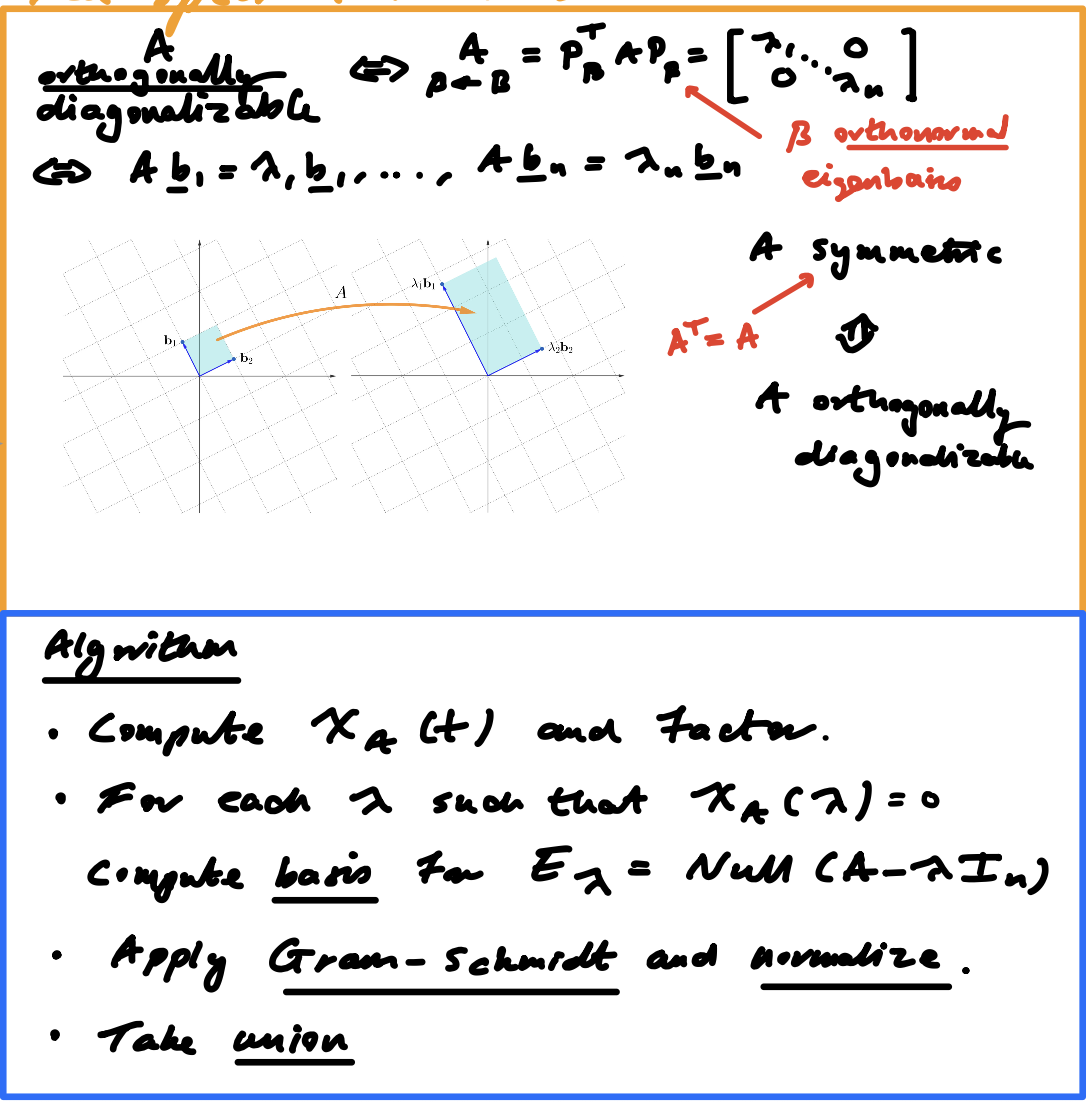 A
orthogonally
diagonalizable
⇔ A β←B = P_B^T A P_β = [λ₁ ⋱ 0 0 λₙ]
β orthonormal
eigenbasis
⇔ A b₁ = λ₁ b₁, ..., A bₙ = λₙ bₙ
A symmetric
Aᵀ = A
⇕
A orthogonally
diagonalizable
A
b₁
b₂
λ₁b₁
λ₂b₂
Algorithm
• Compute χ_A (t) and factor.
• For each λ such that χ_A (λ) = 0
compute basis for E_λ = Null (A - λIₙ)
• Apply Gram-Schmidt and normalize.
• Take union